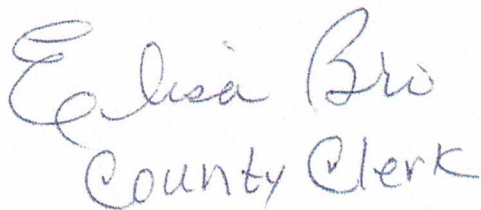 Elisa Bro
County Clerk